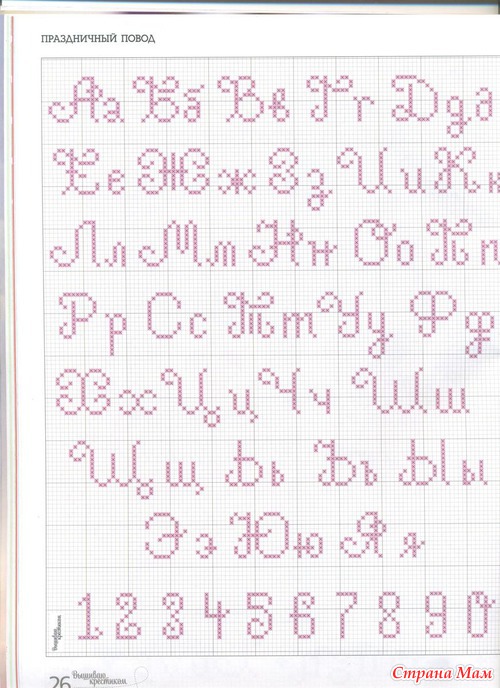 ПРАЗДНИЧНЫЙ ПОВОД
Аа Бб Вв Гг Дд
Ее Жж Зз Ии Кк
Лл Мм Нн Оо Пп
Рр Сс Тт Уу Фф
Хх Цц Чч Шш
Щщ Ьь Ъъ Ыы
Ээ Юю Яя
1 2 3 4 5 6 7 8 9 0
26 Вышиваю крестиком
Страна Мам